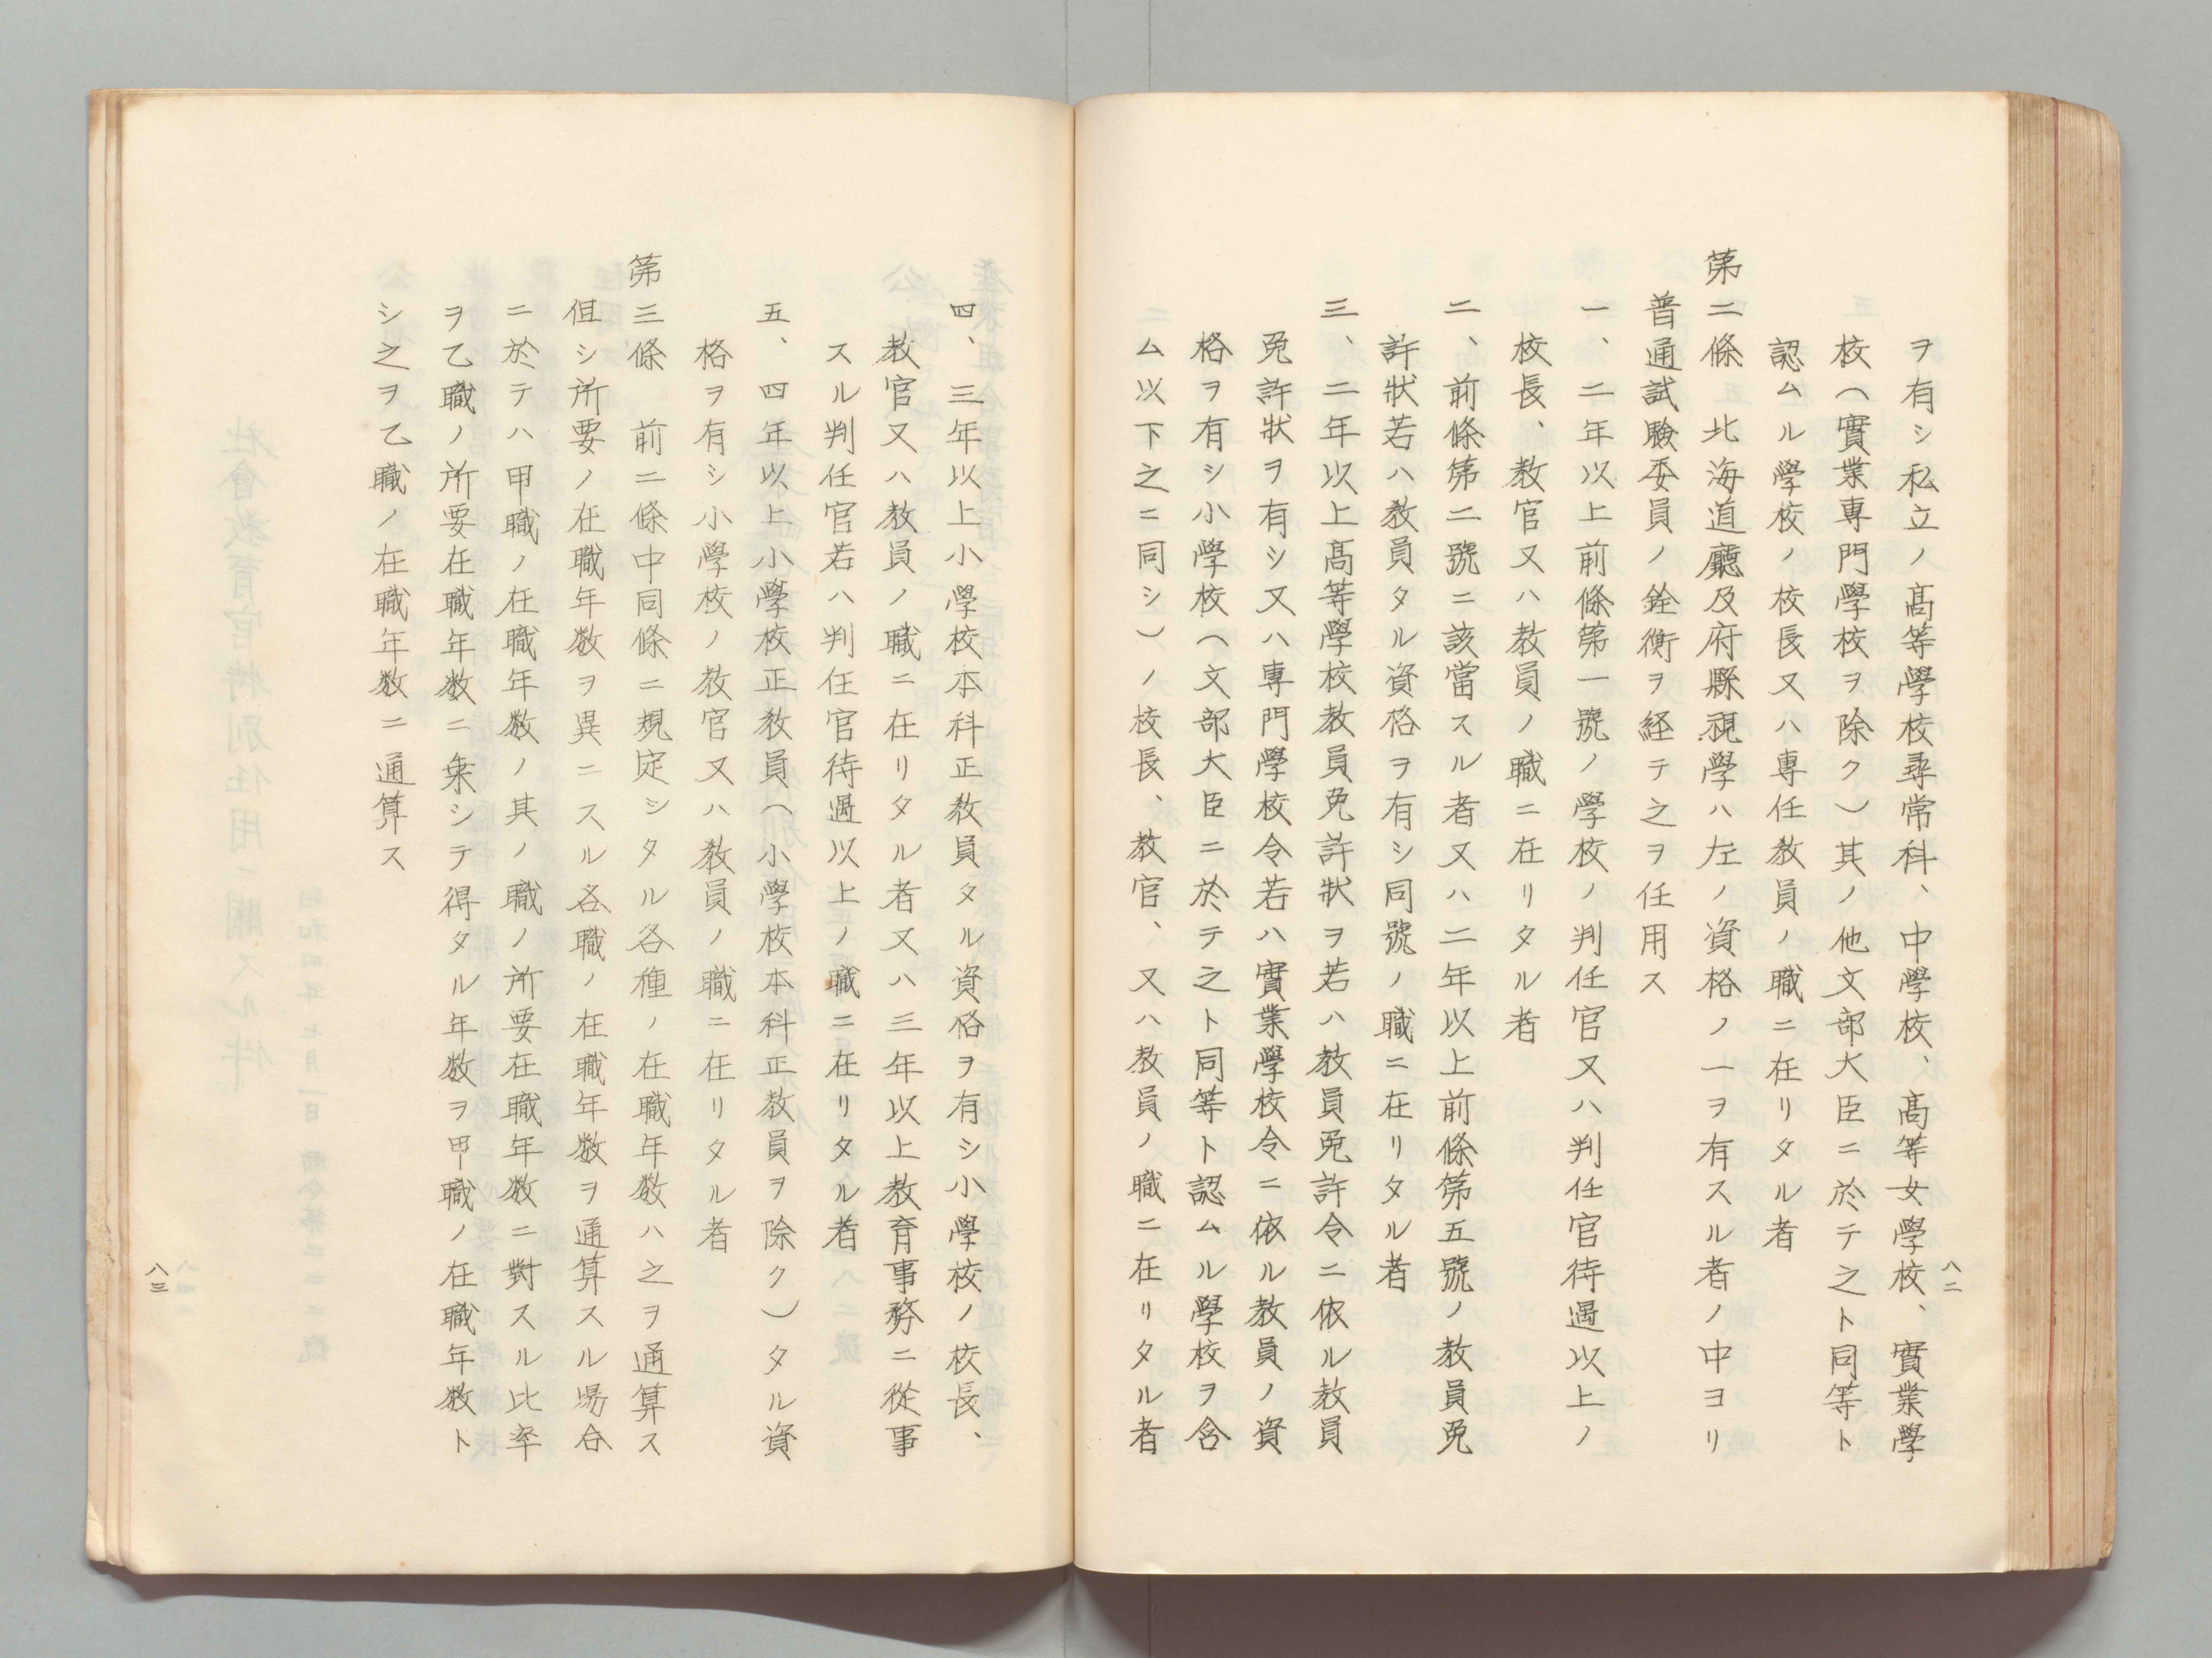 ヲ有シ私立ノ高等學校尋常科、中學校、高等女學校、實業學
校（實業專門學校ヲ除ク）其ノ他文部大臣ニ於テ之ト同等ト
認ムル學校ノ校長又ハ專任敎員ノ職ニ在リタル者
第二條　北海道廳及府縣視學ハ左ノ資格ノ一ヲ有スル者ノ中ヨリ
普通試驗委員ノ銓衡ヲ経テ之ヲ任用ス
一、二年以上前條第一號ノ學校ノ判任官又ハ判任官待遇以上ノ
校長、敎官又ハ敎員ノ職ニ在リタル者
二、前條第二號ニ該當スル者又ハ二年以上前條第五號ノ敎員免
許狀若ハ敎員タル資格ヲ有シ同號ノ職ニ在リタル者
三、二年以上高等學校敎員免許狀ヲ若ハ敎員免許令ニ依ル敎員
免許狀ヲ有シ又ハ專門學校令若ハ實業學校令ニ依ル敎員ノ資
格ヲ有シ小學校（文部大臣ニ於テ之ト同等ト認ムル學校ヲ含
ム以下之ニ同シ）ノ校長、敎官、又ハ敎員ノ職ニ在リタル者
八二
四、三年以上小學校本科正敎員タル資格ヲ有シ小學校ノ校長、
敎官又ハ敎員ノ職ニ在リタル者又ハ三年以上敎育事務ニ從事
スル判任官若ハ判任官待遇以上ノ職ニ在リタル者
五、四年以上小學校正敎員（小學校本科正敎員ヲ除ク）タル資
格ヲ有シ小學校ノ敎官又ハ敎員ノ職ニ在リタル者
第三條　前二條中同條ニ規定シタル各種ノ在職年数ハ之ヲ通算ス
但シ所要ノ在職年数ヲ異ニスル各職ノ在職年数ヲ通算スル場合
ニ於テハ甲職ノ在職年数ノ其ノ職ノ所要在職年数ニ對スル比率
ヲ乙職ノ所要在職年数ニ乗シテ得タル年数ヲ甲職ノ在職年数ト
シ之ヲ乙職ノ在職年数ニ通算ス
八三